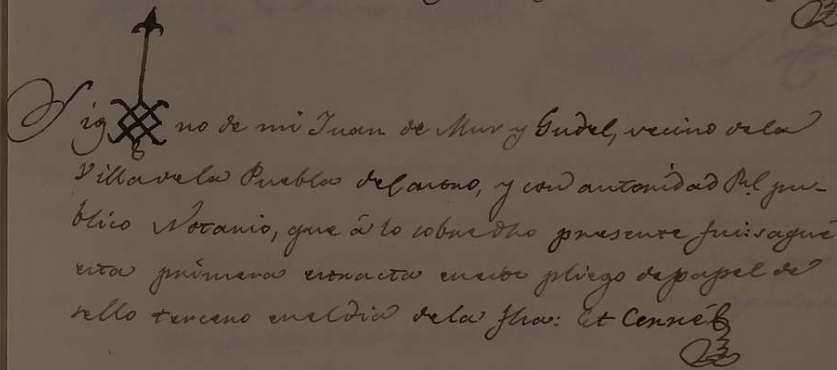 Sig no de mi Juan de Mur y Gudel, vecino de la
Villa de la Puebla de Castro, y con autoridad Rl. pu-
blico Notario, que â lo sobredho presente fui: saqué
esta primera extracta en este pliego de papel de
sello tercero en el dia de la fha: Et Cerré